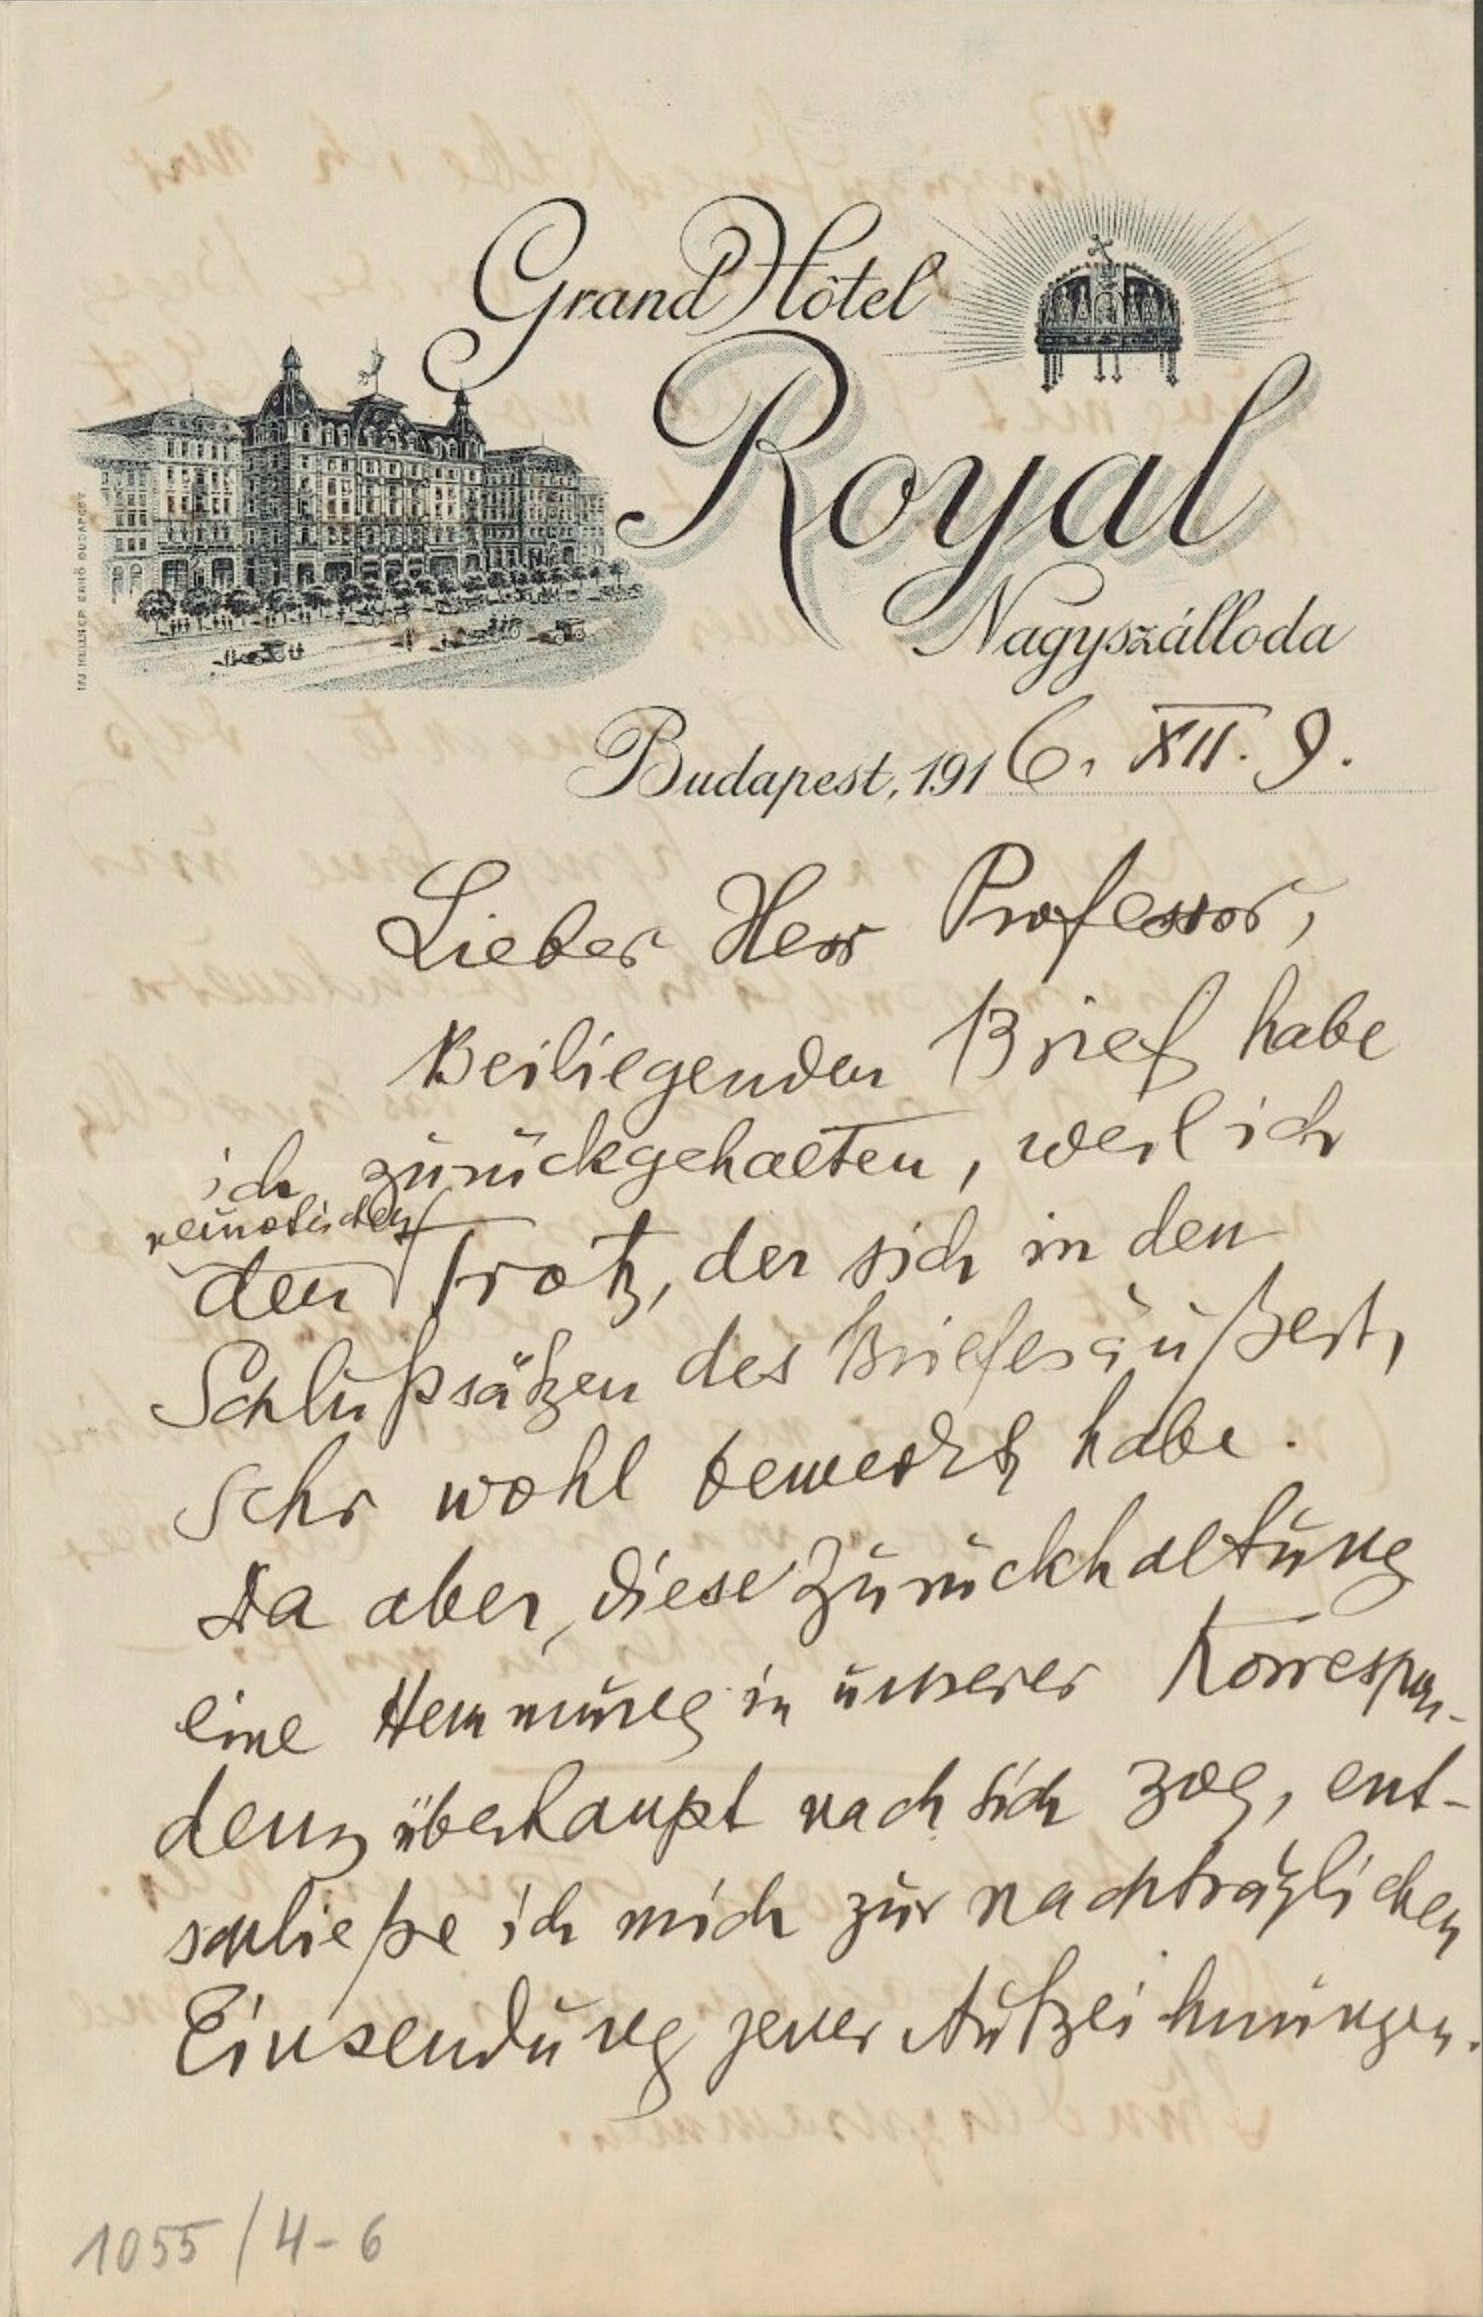 Grand Hôtel
Royal
Nagyszálloda
Budapest, 1916. XII. 9.
Lieber Herr Professor,
Beiliegenden Brief habe
ich zurückgehalten, weil ich
neurotischen
den Trotz, der sich in den
Schlußsätzen des Briefes äußert,
sehr wohl bemerkt habe.
Da aber diese Zurückhaltung
eine Hemmung in unserer Korrespon-
denz überhaupt nach sich zog, ent-
schließe ich mich zur nachträglichen
Einsendung jener Aufzeichnungen.
1055/4-6